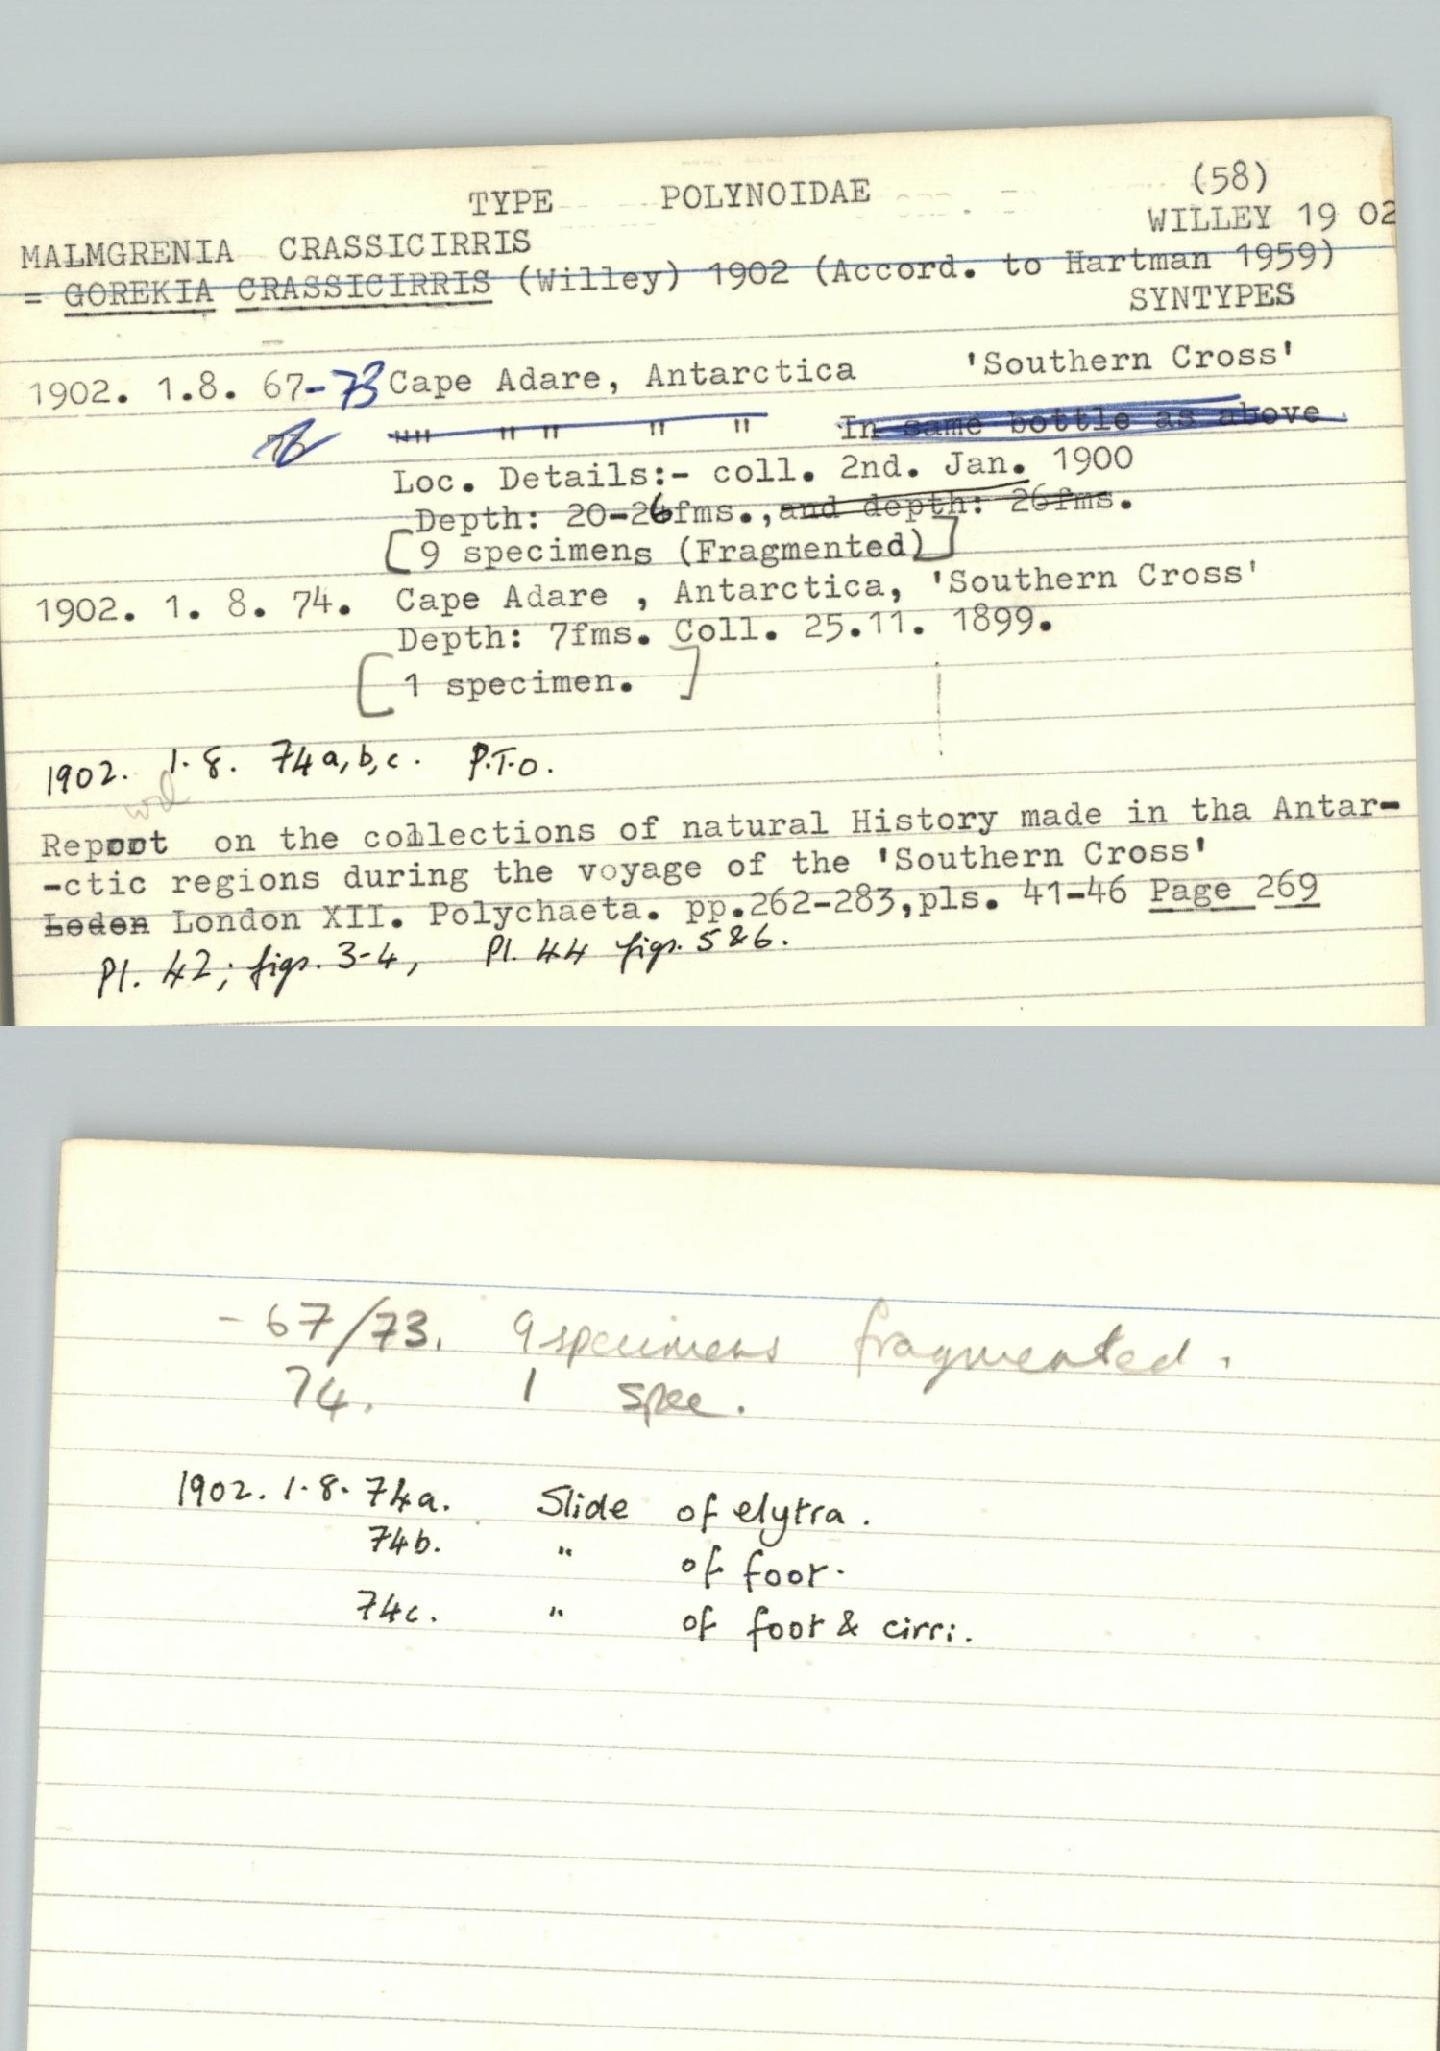 TYPE POLYNOIDAE (58)
MALMGRENIA CRASSICIRRIS WILLEY 19 02
= GOREKIA CRASSICIRRIS (Willey) 1902 (Accord. to Hartman 1959)
SYNTYPES
1902. 1.8. 67-73 Cape Adare, Antarctica 'Southern Cross'
"" " " " " In same bottle as above
Loc. Details:- coll. 2nd. Jan. 1900
Depth: 20-26fms., and depth: 26fms.
[9 specimens (Fragmented)]
1902. 1. 8. 74. Cape Adare , Antarctica, 'Southern Cross'
Depth: 7fms. Coll. 25.11. 1899.
[1 specimen. ]
1902. 1.8. 74a,b,c. P.T.O.
Report on the collections of natural History made in tha Antar-
-ctic regions during the voyage of the 'Southern Cross'
London XII. Polychaeta. pp.262-283,pls. 41-46 Page 269
Pl. 42; figs. 3-4, Pl. 44 figs. 5&6.
- 67/73. 9 specimens fragmented.
74. 1 spec.
1902. 1.8. 74a. Slide of elytra.
74b. " of foot.
74c. " of foot & cirri.